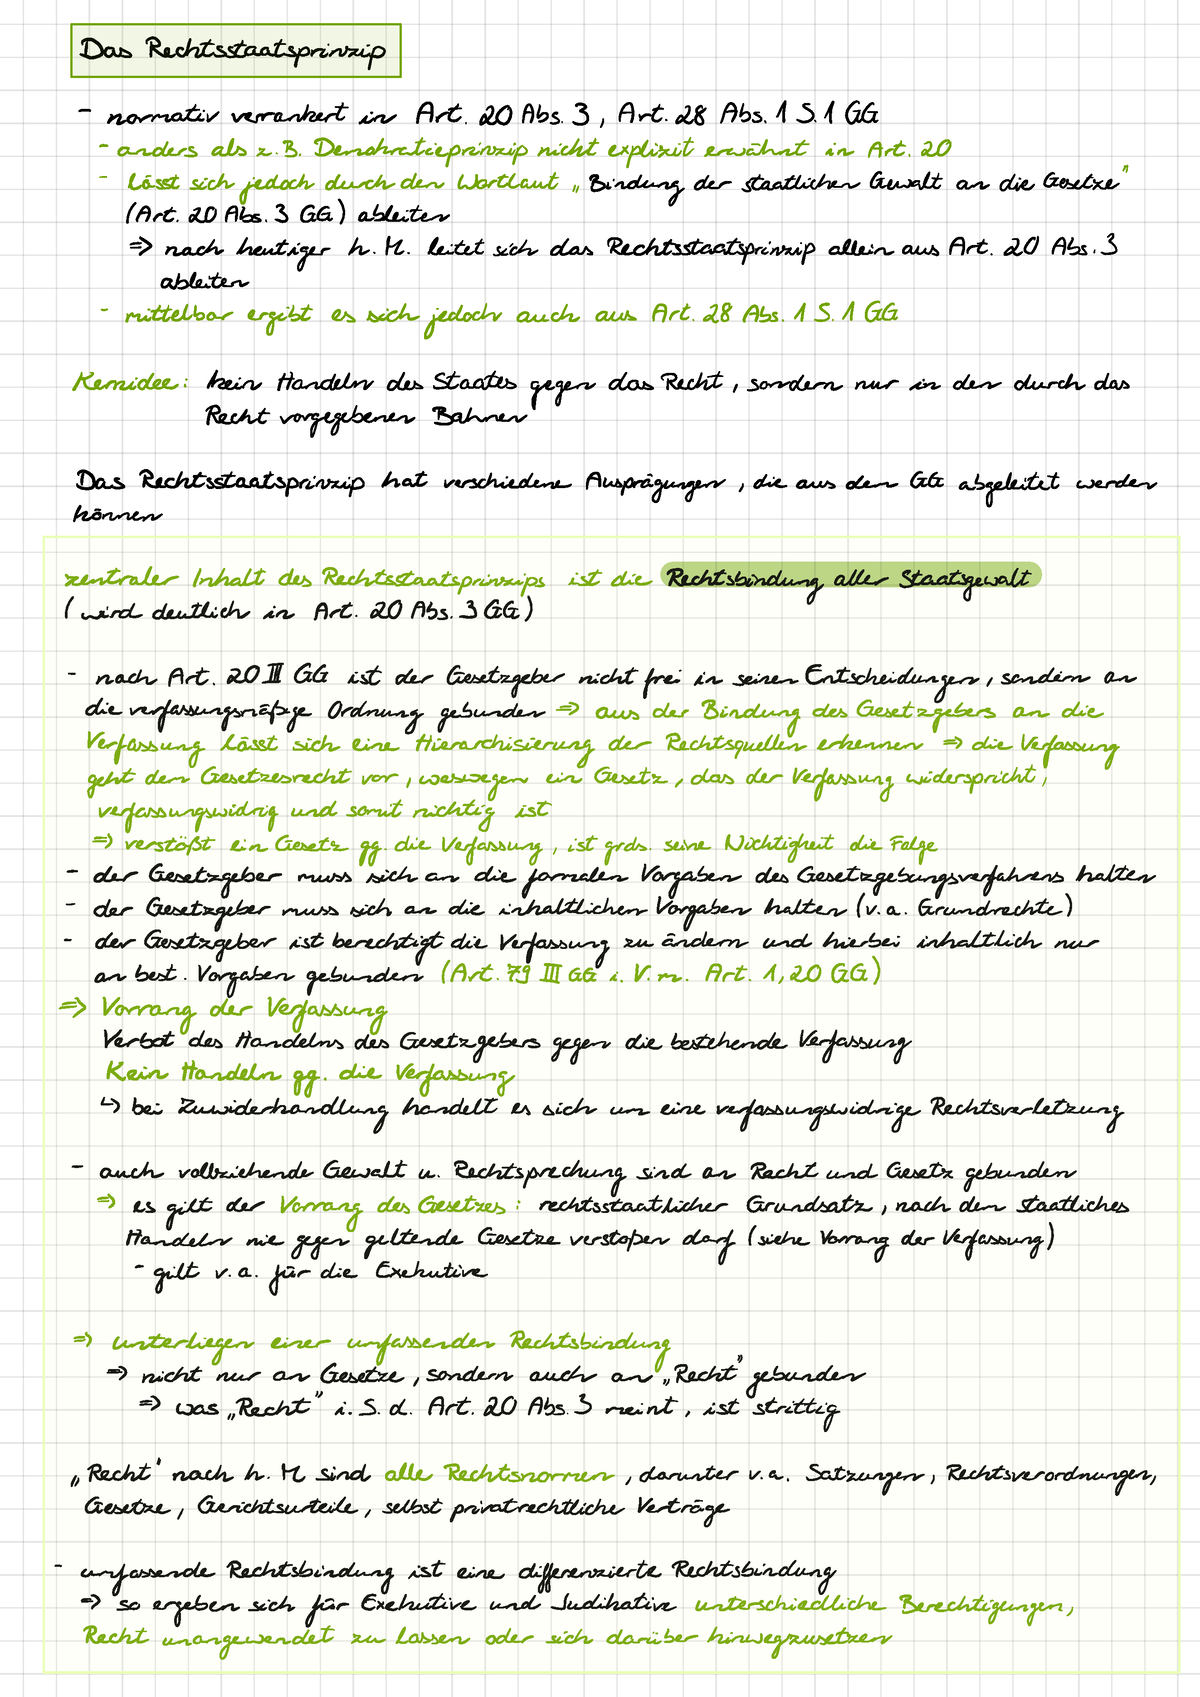 Das Rechtsstaatsprinzip
- normativ verankert in Art. 20 Abs. 3, Art. 28 Abs. 1 S. 1 GG
- anders als z.B. Demokratieprinzip nicht explizit erwähnt in Art. 20
- lässt sich jedoch durch den Wortlaut „Bindung der staatlichen Gewalt an die Gesetze"
(Art. 20 Abs. 3 GG) ableiten
=> nach heutiger h. M. leitet sich das Rechtsstaatsprinzip allein aus Art. 20 Abs. 3
ableiten
- mittelbar ergibt es sich jedoch auch aus Art. 28 Abs. 1 S. 1 GG
Kernidee: kein Handeln des Staates gegen das Recht, sondern nur in den durch das
Recht vorgegebenen Bahnen
Das Rechtsstaatsprinzip hat verschiedene Ausprägungen, die aus dem GG abgeleitet werden
können
zentraler Inhalt des Rechtsstaatsprinzips ist die Rechtsbindung aller Staatsgewalt
(wird deutlich in Art. 20 Abs. 3 GG)
- nach Art. 20 III GG ist der Gesetzgeber nicht frei in seinen Entscheidungen, sondern an
die verfassungsmäßige Ordnung gebunden => aus der Bindung des Gesetzgebers an die
Verfassung lässt sich eine Hierarchisierung der Rechtsquellen erkennen => die Verfassung
geht dem Gesetzesrecht vor, weswegen ein Gesetz, das der Verfassung widerspricht,
verfassungswidrig und somit nichtig ist
=> verstößt ein Gesetz gg. die Verfassung, ist grds. seine Nichtigkeit die Folge
- der Gesetzgeber muss sich an die formalen Vorgaben des Gesetzgebungsverfahrens halten
- der Gesetzgeber muss sich an die inhaltlichen Vorgaben halten (v.a. Grundrechte)
- der Gesetzgeber ist berechtigt die Verfassung zu ändern und hierbei inhaltlich nur
an best. Vorgaben gebunden (Art. 79 III GG i. V. m. Art. 1, 20 GG)
=> Vorrang der Verfassung
Verbot des Handelns des Gesetzgebers gegen die bestehende Verfassung
Kein Handeln gg. die Verfassung
↳ bei Zuwiderhandlung handelt es sich um eine verfassungswidrige Rechtsverletzung
- auch vollziehende Gewalt u. Rechtsprechung sind an Recht und Gesetz gebunden
=> es gilt der Vorrang des Gesetzes: rechtsstaatlicher Grundsatz, nach dem staatliches
Handeln nie gegen geltende Gesetze verstoßen darf (siehe Vorrang der Verfassung)
- gilt v.a. für die Exekutive
=> unterliegen einer umfassenden Rechtsbindung
=> nicht nur an Gesetze, sondern auch an „Recht" gebunden
=> was „Recht" i. S. d. Art. 20 Abs. 3 meint, ist strittig
„Recht" nach h. M sind alle Rechtsnormen, darunter v.a. Satzungen, Rechtsverordnungen,
Gesetze, Gerichtsurteile, selbst privatrechtliche Verträge
- umfassende Rechtsbindung ist eine differenzierte Rechtsbindung
=> so ergeben sich für Exekutive und Judikative unterschiedliche Berechtigungen,
Recht unangewendet zu lassen oder sich darüber hinwegzusetzen